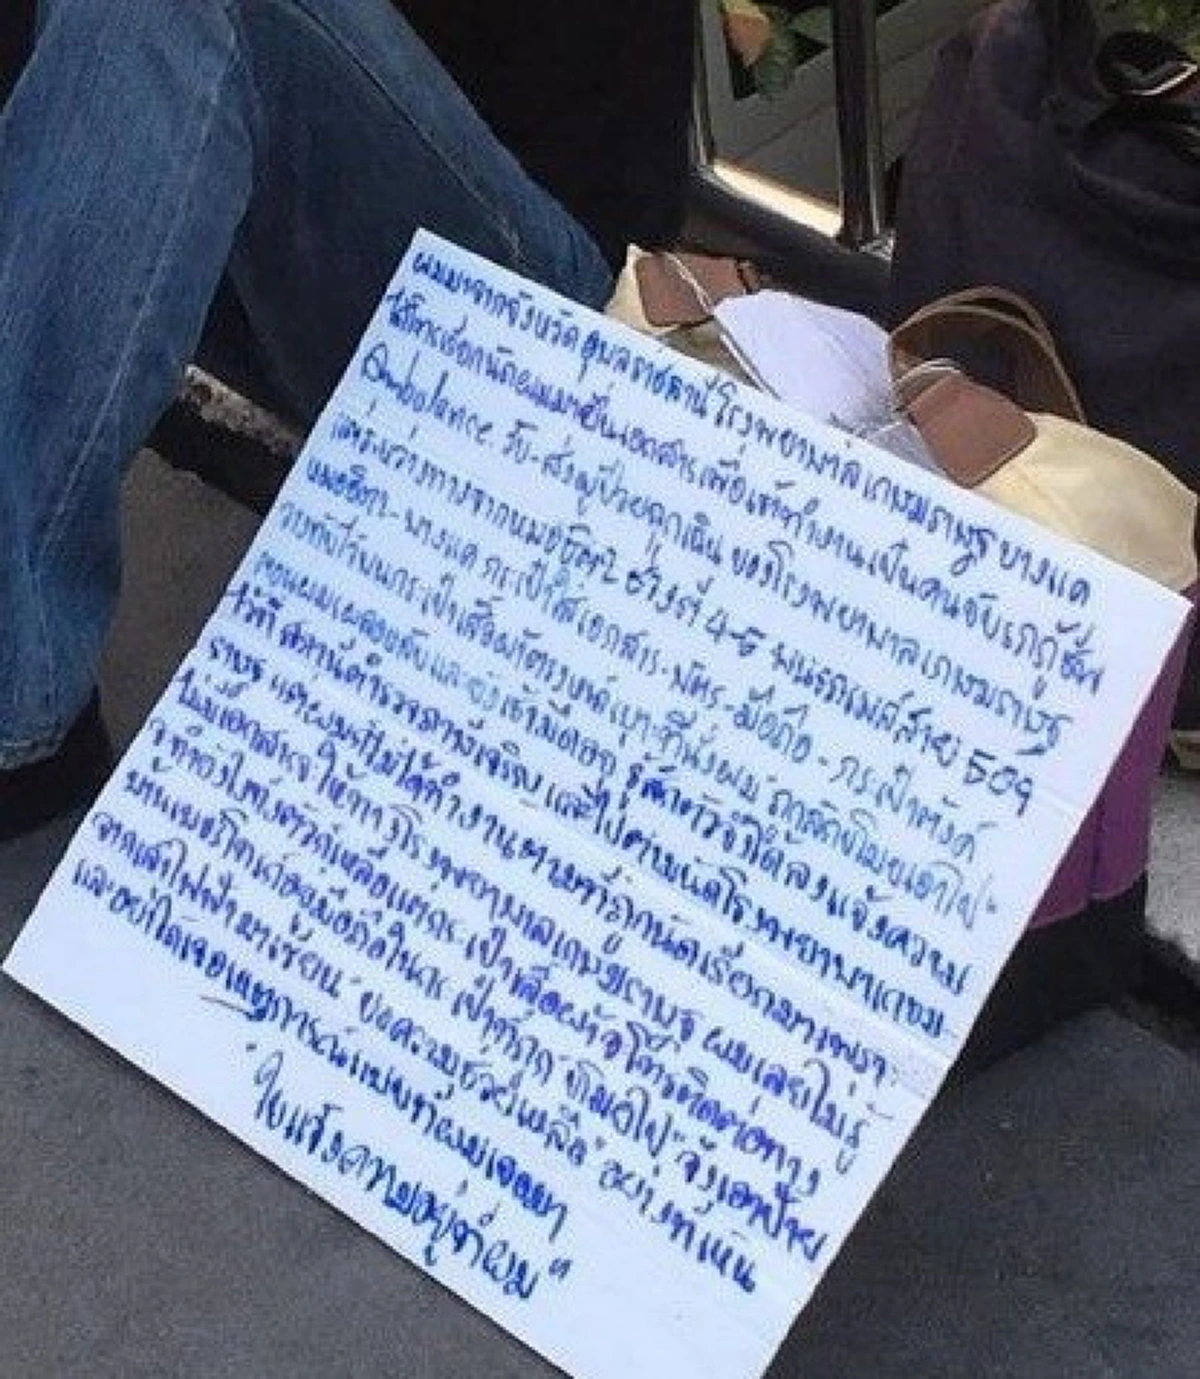 ผมมาจากจังหวัดอุบลราชธานี โรงพยาบาลเกษมราษฐ บางแค
ได้การเรียกนัดผมมายื่นเอกสารเพื่อเข้าทำงานเป็นคนขับรถกู้ชีพ
Ambolance รับ-ส่งผู้ป่วยฉุกเฉิน ของโรงพยาบาลเกษมราษฐ
แต่ระหว่างทางจากหมอชิต2 ช่วงตี 4-5 บนรถเมล์สาย 509
หมอชิต2-บางแค กระเป๋าใส่เอกสาร-บัตร-มือถือ-กระเป๋าตังค์
วางทับไว้บนกระเป๋าเสื้อผ้าตรง เบาะที่นั่งผม ถูกลักขโมยเอาไป"
ตอนผมเผลอหลับและยังเช้ามืดอยู่ รู้สึกตัวจึงได้ลงแจ้งความ
ไว้ที่ สถานีตำรวจ และไปตามนัดโรงพยาบาลเกษม-
ราษฐ แต่ผมก็ไม่ได้ทำงานตามที่ถูกนัดเรียกมาเพราะ
ไม่มีเอกสารจะให้ทางโรงพยาบาลเกษมราษฐ ผมเลยไม่รู้
จะทำยังไง เหลือแต่กระเป๋าเสื้อผ้าจะโทรติดต่อทาง
บ้านเบอร์โทรก็อยู่มือถือในกระเป๋าที่ถูก ขโมยไป" จึงเอาป้าย
จากเสาไฟฟ้ามาเขียน" ขอความช่วยเหลือ" อย่างที่เห็น
และอย่าได้เจอเหตุการณ์แบบที่ผมเจอมา
"ใบแจ้งความอยู่ที่ผม"